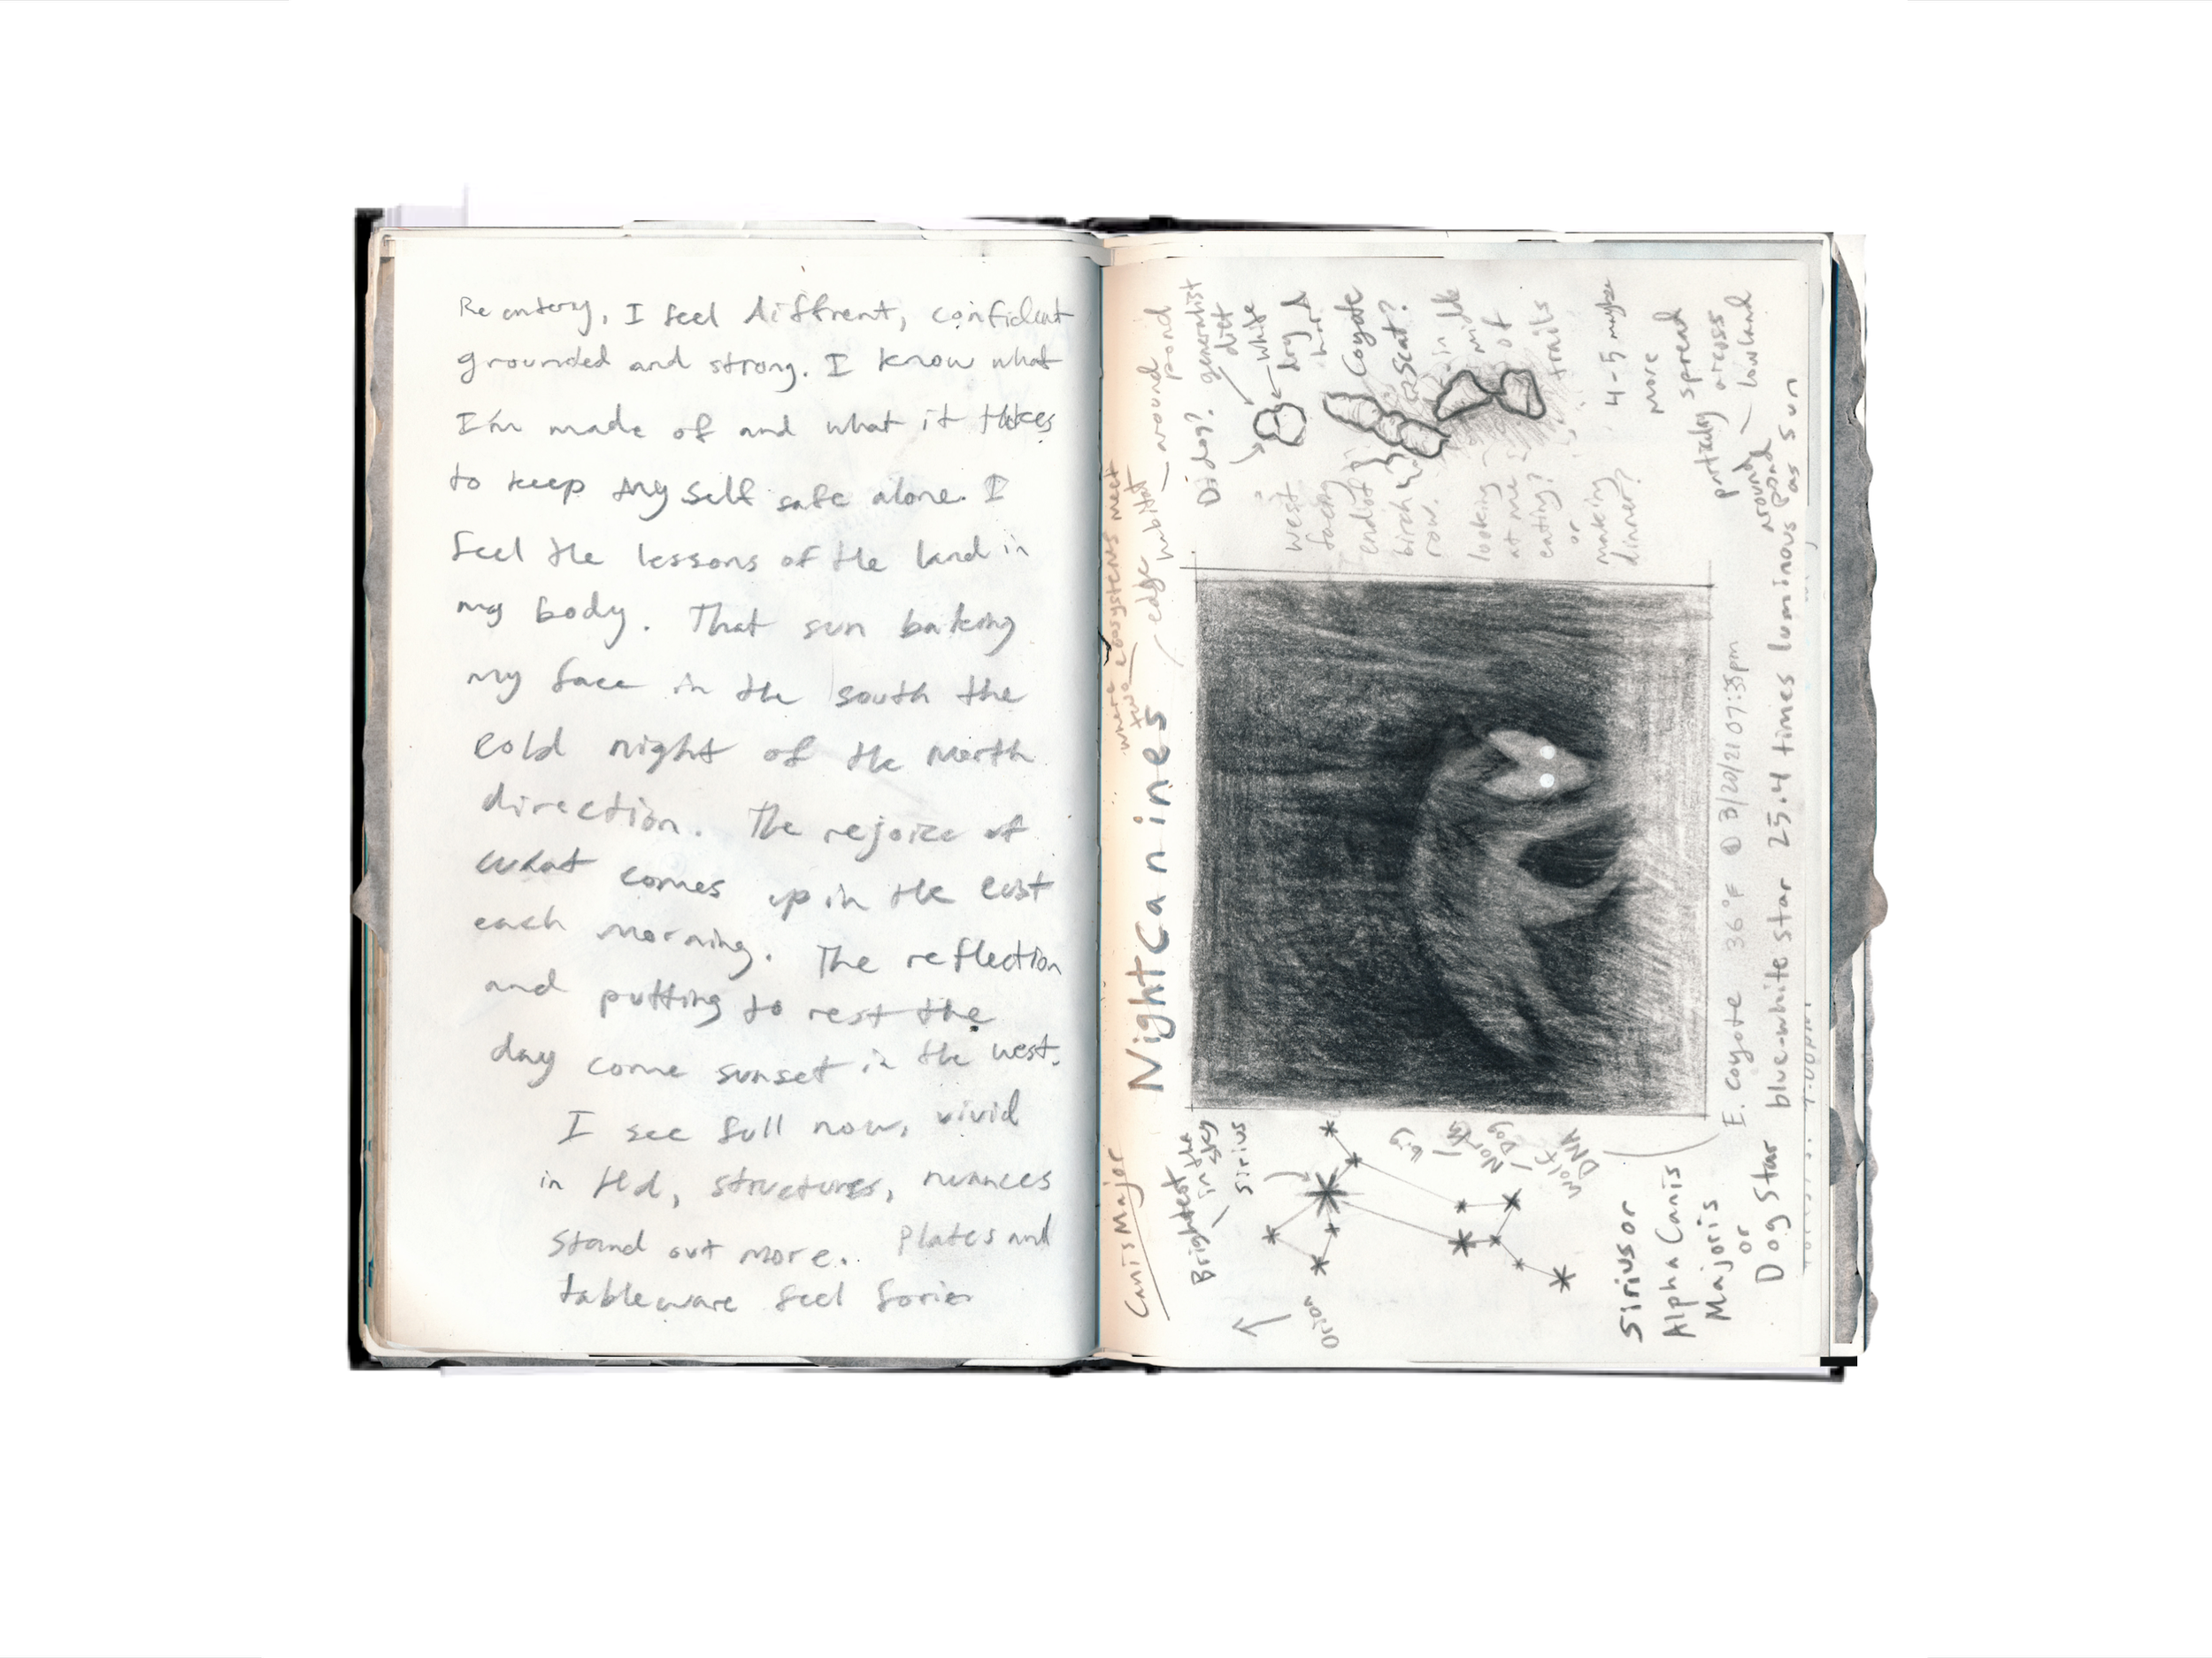 Re entery, I feel diffrent, confident
grounded and strong. I know what
I'm made of and what it takes
to keep my self safe alone. I
feel the lessons of the land in
my body. That sun baking
my face in the south the
cold night of the North
direction. The rejoice of
what comes up in the east
each morning. The reflection
and putting to rest the
day come sunset in the west.
I see full now, vivid
in structures, nuances
stand out more. Plates and
tableware feel
Canis Major
where two ecosystems meet
Night Canines
edge habitat
around pond
Brightest
in the sky
Sirius
Orion
Big
North
Dog
wolf
DNA
Sirius or
Alpha Canis
Majoris
or
Dog Star
blue-white star 25.4 times luminous as sun
E. Coyote 36°F @ 3/20/21 07:35pm
Did dog?
generalist
diet
white
dry
hard
Coyote
scat?
in middle
of
trails
4-5 maybe
more
spread
across
lowland
partially
around
pond
west
facing
end of
birch
row.
looking
at me
eating?
or
making
dinner?